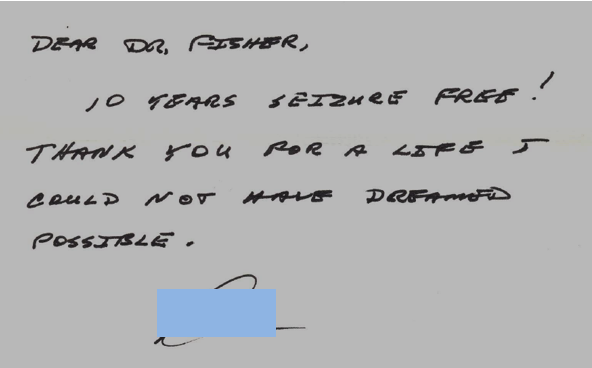 DEAR DR. FISHER,
10 YEARS SEIZURE FREE!
THANK YOU FOR A LIFE I
COULD NOT HAVE DREAMED
POSSIBLE.